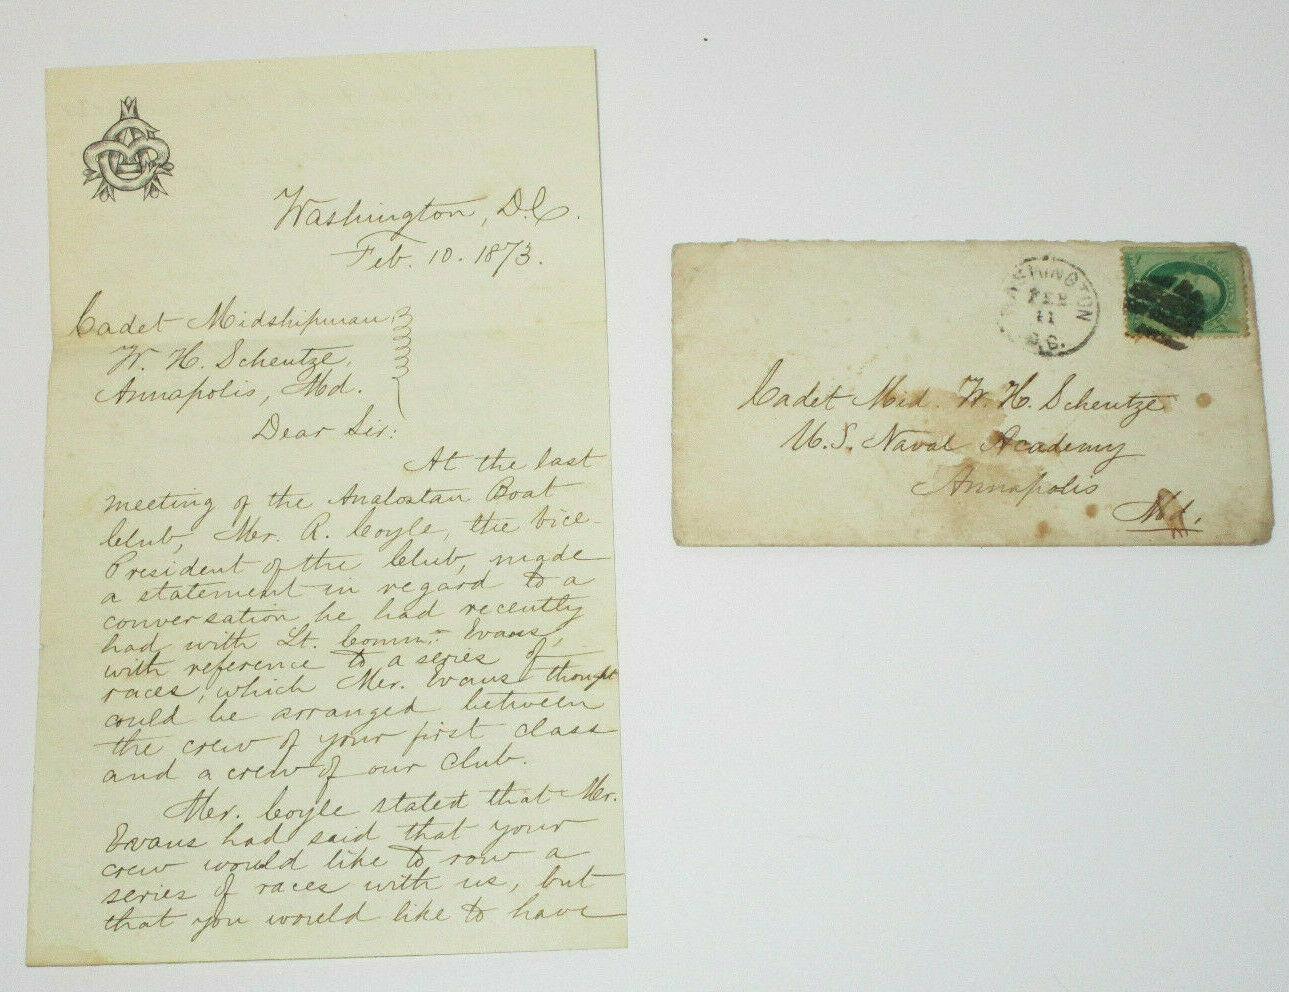 Washington, D.C.
Feb. 10. 1873.
Cadet Midshipman
W. H. Scheutze,
Annapolis, Md.
Dear Sir:
At the last
meeting of the Analostan Boat
Club, Mr. R. Coyle, the Vice-
President of the Club, made
a statement in regard to a
conversation he had recently
had with Lt. Comm. Evans,
with reference to a series of
races, which Mr. Evans thought
could be arranged between
the crew of your first class
and a crew of our club.
Mr. Coyle stated that Mr.
Evans had said that your
crew would like to row a
series of races with us, but
that you would like to have
WASHINGTON
FEB
11
D.C.
Cadet Mid. W. H. Scheutze
U.S. Naval Academy
Annapolis
Md.